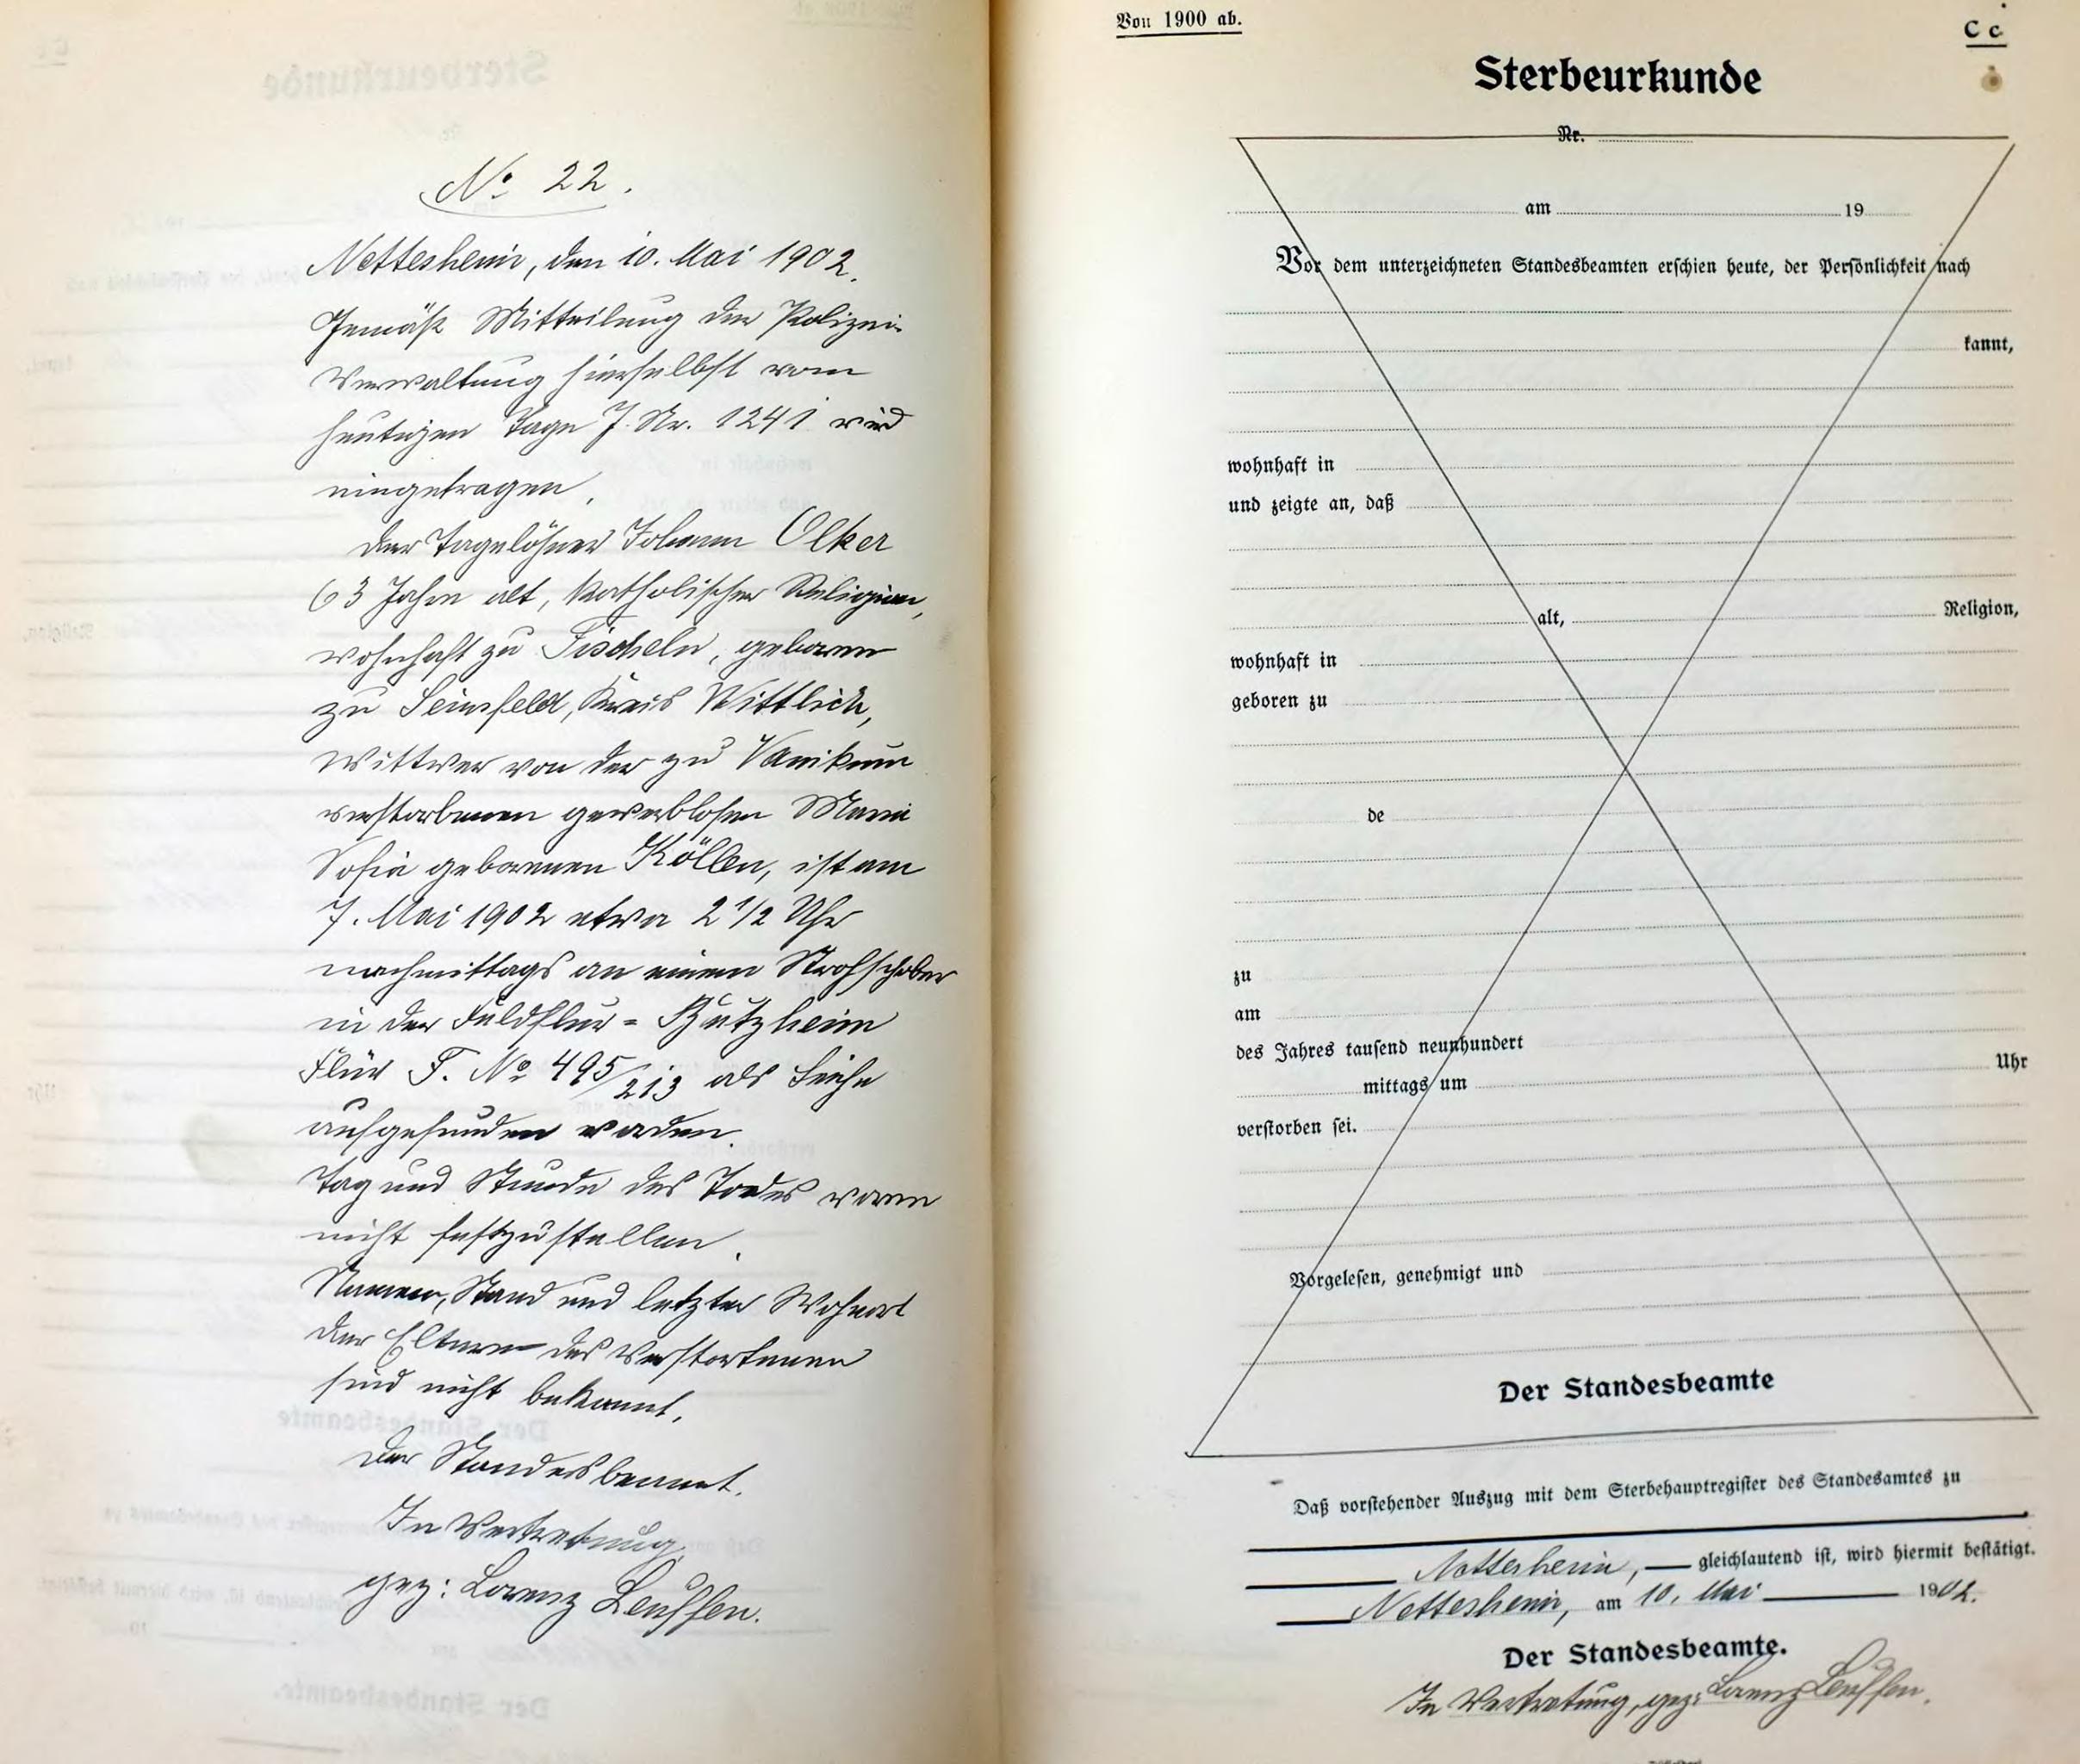 No 22.
Nettesheim, den 10. Mai 1902.
Gemäß Mitteilung der Polizei-
Verwaltung hierselbst vom
heutigen Tage J. Nr. 1241 wird
eingetragen.
Der Tagelöhner Johann Olker
63 Jahre alt, katholischer Religion,
wohnhaft zu Fischeln, geboren
zu Seinsfeld, Kreis Wittlich,
Wittwer von der zu Vanikum
verstorbenen gewerblosen Maria
Sofia geborenen Köllen, ist am
7. Mai 1902 etwa 2 1/2 Uhr
nachmittags an einem Strohschober
in der Feldflur - Bützheim
Flur F. No 495/213 als Leiche
aufgefunden worden.
Tag und Stunde des Todes waren
nicht festzustellen.
Namen, Stand und letzter Wohnort
der Eltern des Verstorbenen
sind nicht bekannt.
Der Standesbeamt.
In Vertretung
gez: Lorenz Leuffen.
Von 1900 ab.
C c
Sterbeurkunde
Nr.
am 19
Vor dem unterzeichneten Standesbeamten erschien heute, der Persönlichkeit nach
kannt,
wohnhaft in
und zeigte an, daß
alt, Religion,
wohnhaft in
geboren zu
de
zu
am
des Jahres tausend neunhundert
mittags um Uhr
verstorben sei.
Vorgelesen, genehmigt und
Der Standesbeamte
Daß vorstehender Auszug mit dem Sterbehauptregister des Standesamtes zu
Nettesheim, gleichlautend ist, wird hiermit bestätigt.
Nettesheim, am 10. Mai 1902.
Der Standesbeamte.
In Vertretung, gez: Lorenz Leuffen.